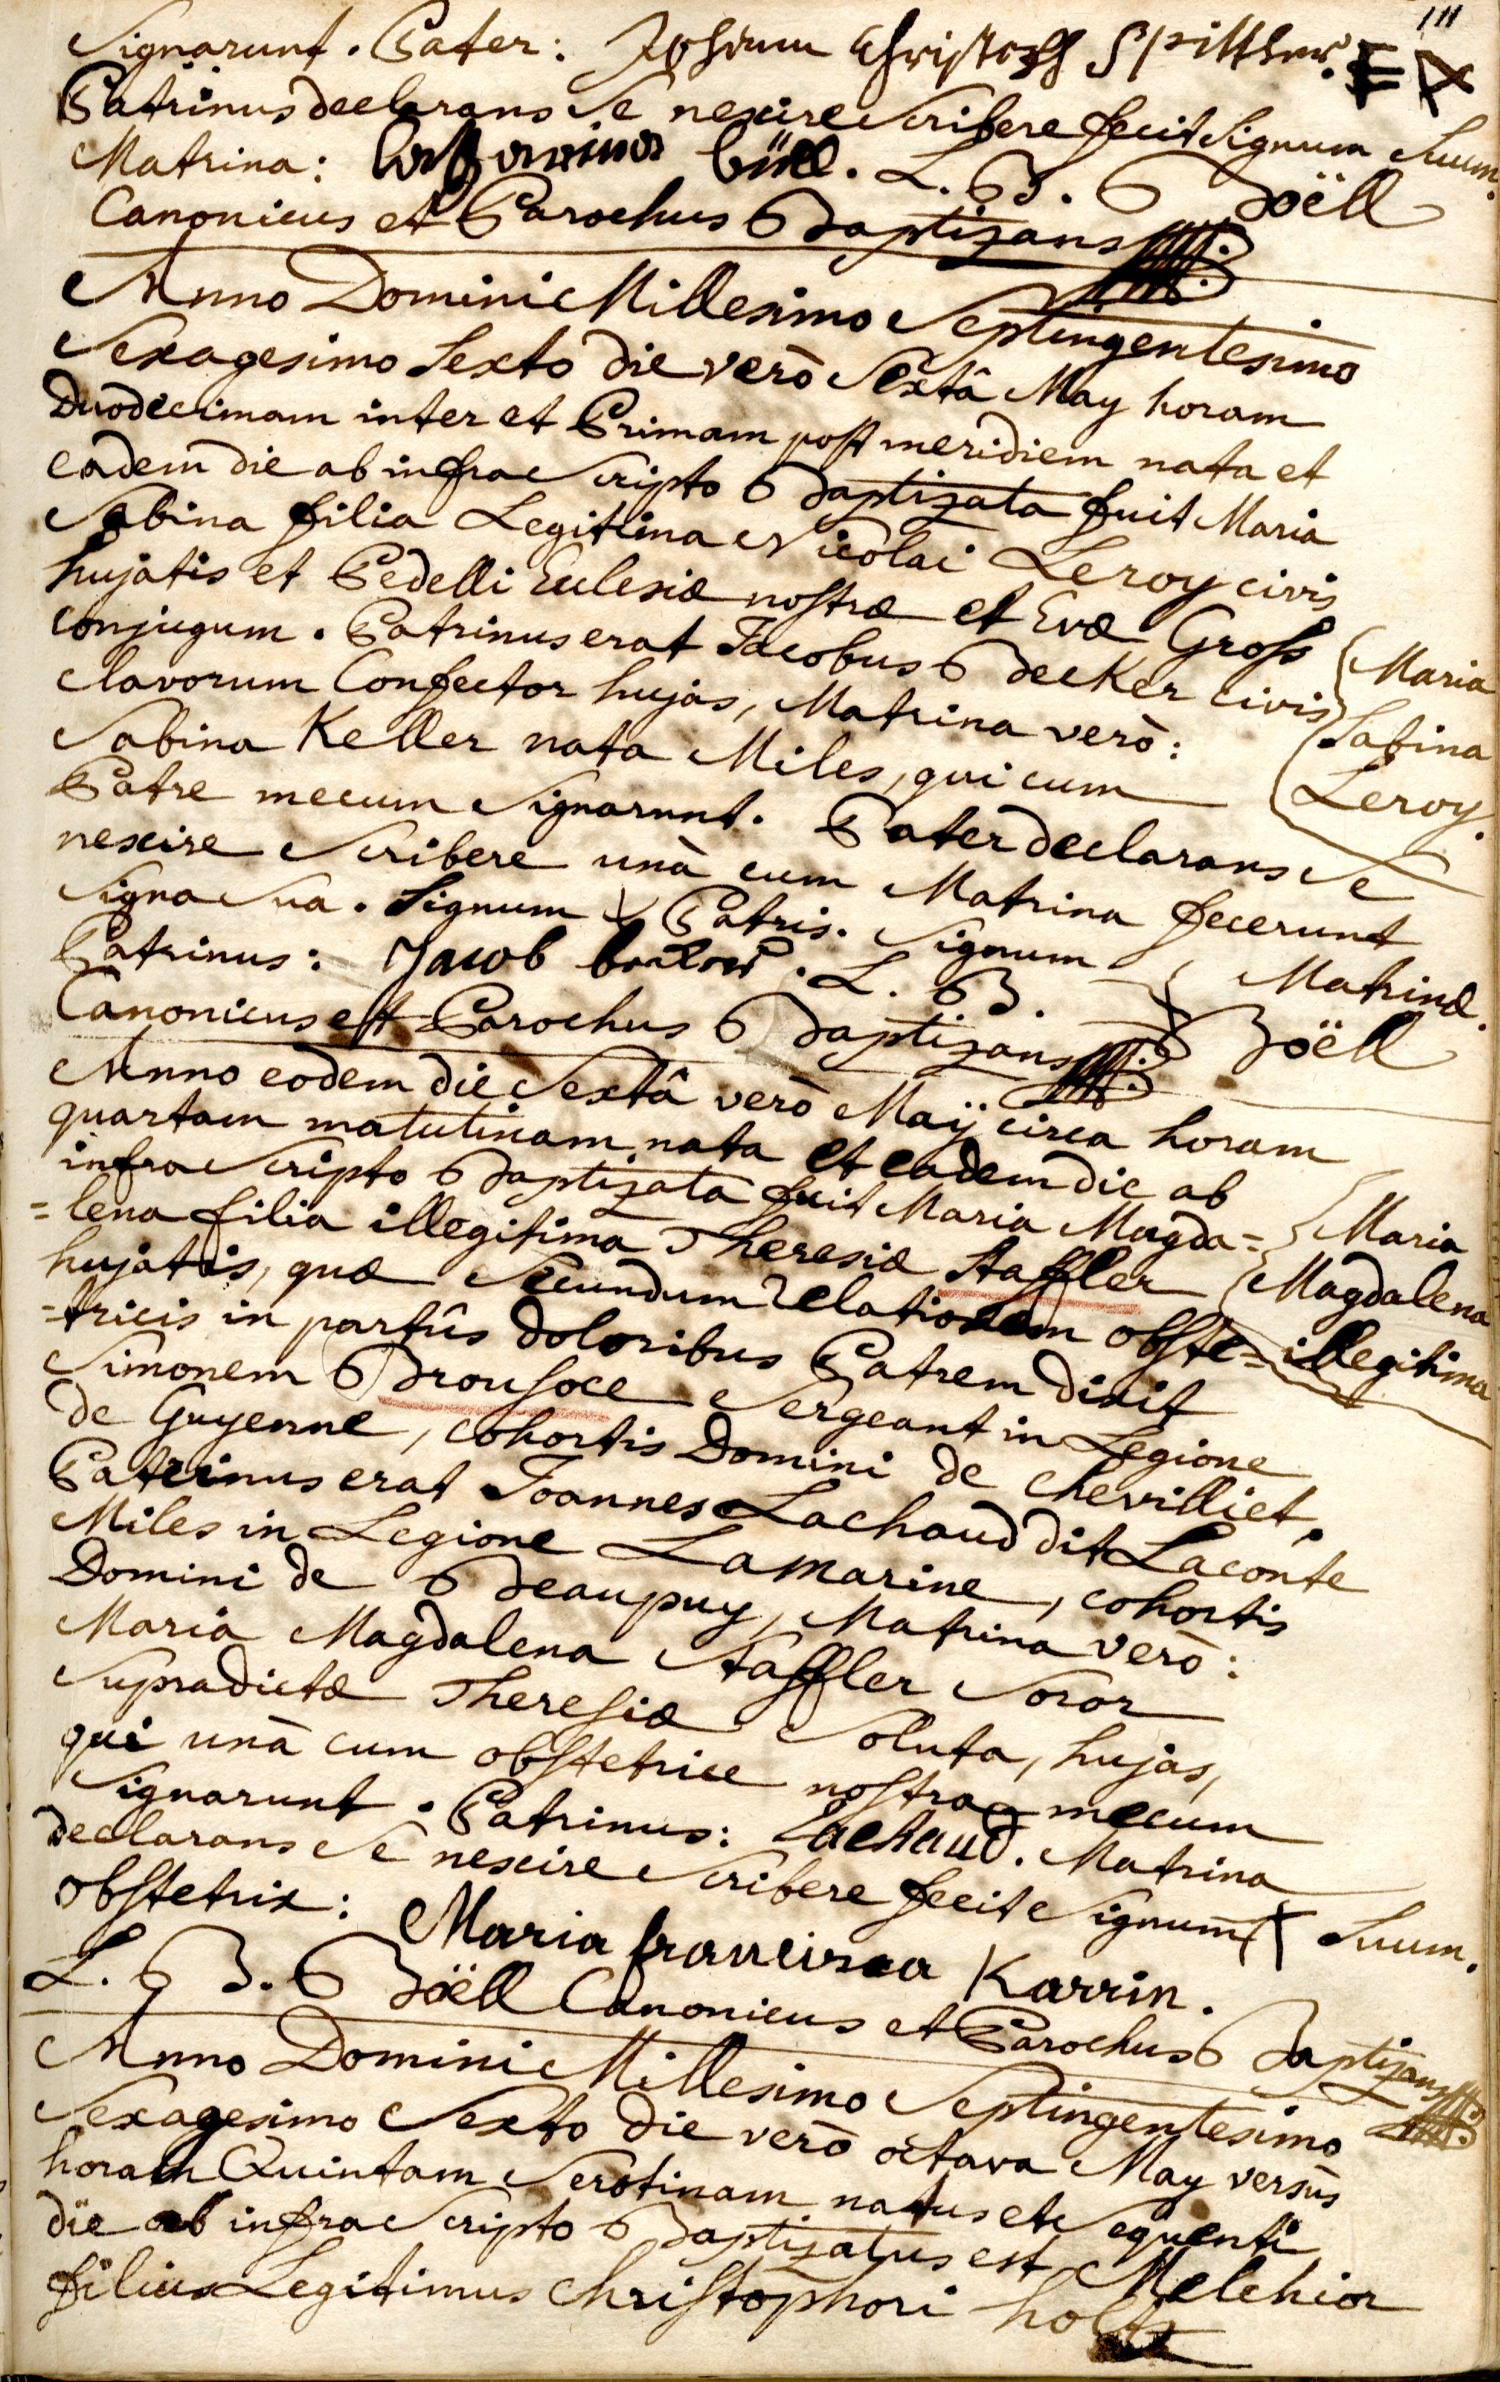 111
Signarunt. Pater: Johann Christoph Spittler.
Patrinus declarans se nescire scribere fecit Signum Suum.
Matrina: Catharina büll. L. B. Böell
Canonicus et Parochus Baptizans
Anno Domini Millesimo Septingentesimo
Sexagesimo Sexto die verò Sextâ May horam
Duodecimam inter et Primam post meridiem nata et
eadem die ab infra scripto Baptizata fuit Maria
Sabina filia Legitima Nicolai Leroy civis
hujatis et Pedelli Eulesiæ nostræ et Evæ Gross
conjugum. Patrinus erat Jacobus Becker civis
clavorum Confector hujas, Matrina verò:
Sabina Keller nata Miles, qui cum
Patre mecum Signarunt. Pater declarans se
nescire scribere unà cum Matrina fecerunt
Signa sua. Signum Patris. Signum Matrinæ.
Patrinus: Jacob. L. B. Böell
Canonicus et Parochus Baptizans
Maria
Sabina
Leroy.
Anno eodem die Sextâ verò Maÿ circa horam
quartam matutinam nata et eadem die ab
infra scripto Baptizata fuit Maria Magda=
=lena filia illegitima Theresiæ Staffler
hujatis, quæ Secundum Relationem obste=
=tricis in partûs doloribus Patrem dixit
Simonem Brousoce Sergeant in Legione
de Guyenne, cohortis Domini de Chevilliet.
Patrinus erat Joannes Lachaud dit Laconte
Miles in Legione Lamarine, cohortis
Domini de Beaupuy, Matrina verò:
Maria Magdalena Staffler Soror
Supradictæ Theresiæ Soluta, hujas,
qui unà cum obstetrice nostra mecum
Signarunt. Patrinus: Lachaud. Matrina
declarans se nescire scribere fecit Signum Suum.
obstetrix: Maria francisca Karrin.
L. B. Böell Canonicus et Parochus Baptizans
Maria
Magdalena
illegitima
Anno Domini Millesimo Septingentesimo
Sexagesimo Sexto die verò octava May versùs
horam Quintam Serotinam natus et sequenti
die ab infra scripto Baptizatus est Melchior
filius Legitimus Christophori